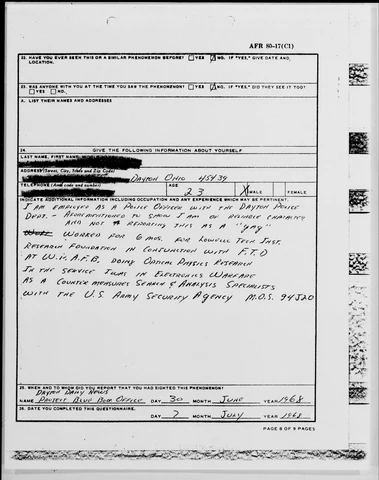 AFR 80-17(C1)
22. HAVE YOU EVER SEEN THIS OR A SIMILAR PHENOMENON BEFORE? YES NO. IF "YES", GIVE DATE AND
LOCATION.
23. WAS ANYONE WITH YOU AT THE TIME YOU SAW THE PHENOMENON? YES NO. IF "YES," DID THEY SEE IT TOO?
YES NO.
A. LIST THEIR NAMES AND ADDRESSES
24. GIVE THE FOLLOWING INFORMATION ABOUT YOURSELF
LAST NAME, FIRST NAME,
ADDRESS (Street, City, State and Zip Code) DAYTON OHIO 45439
TELEPHONE (Area code and number) AGE 23 X MALE FEMALE
INDICATE ADDITIONAL INFORMATION INCLUDING OCCUPATION AND ANY EXPERIENCE WHICH MAY BE PERTINENT.
I AM EMPLOYED AS A POLICE OFFICER WITH THE DAYTON POLICE
DEPT. - MENTIONED TO SHOW I AM OF RELIABLE CHARACTER
AND NOT REPORTING THIS AS A "GAG"
WORKED FOR 6 MOS. FOR LOWELL TECH INST.
RESEARCH FOUNDATION IN CONJUNCTION WITH F.T.D
AT W.P. A.F.B. DOING OPTICAL PHYSICS RESEARCH
IN THE SERVICE I WAS IN ELECTRONICS WARFARE
AS A COUNTER MEASURES SEARCH & ANALYSIS SPECIALISTS
WITH THE U.S. ARMY SECURITY AGENCY M.O.S. 94J20
25. WHEN AND TO WHOM DID YOU REPORT THAT YOU HAD SIGHTED THIS PHENOMENON?
DAYTON DAILY NEWS
NAME PROJECT BLUE BOOK OFFICE DAY 30 MONTH JUNE YEAR 1968
26. DATE YOU COMPLETED THIS QUESTIONNAIRE.
DAY 7 MONTH JULY YEAR 1968
PAGE 8 OF 9 PAGES